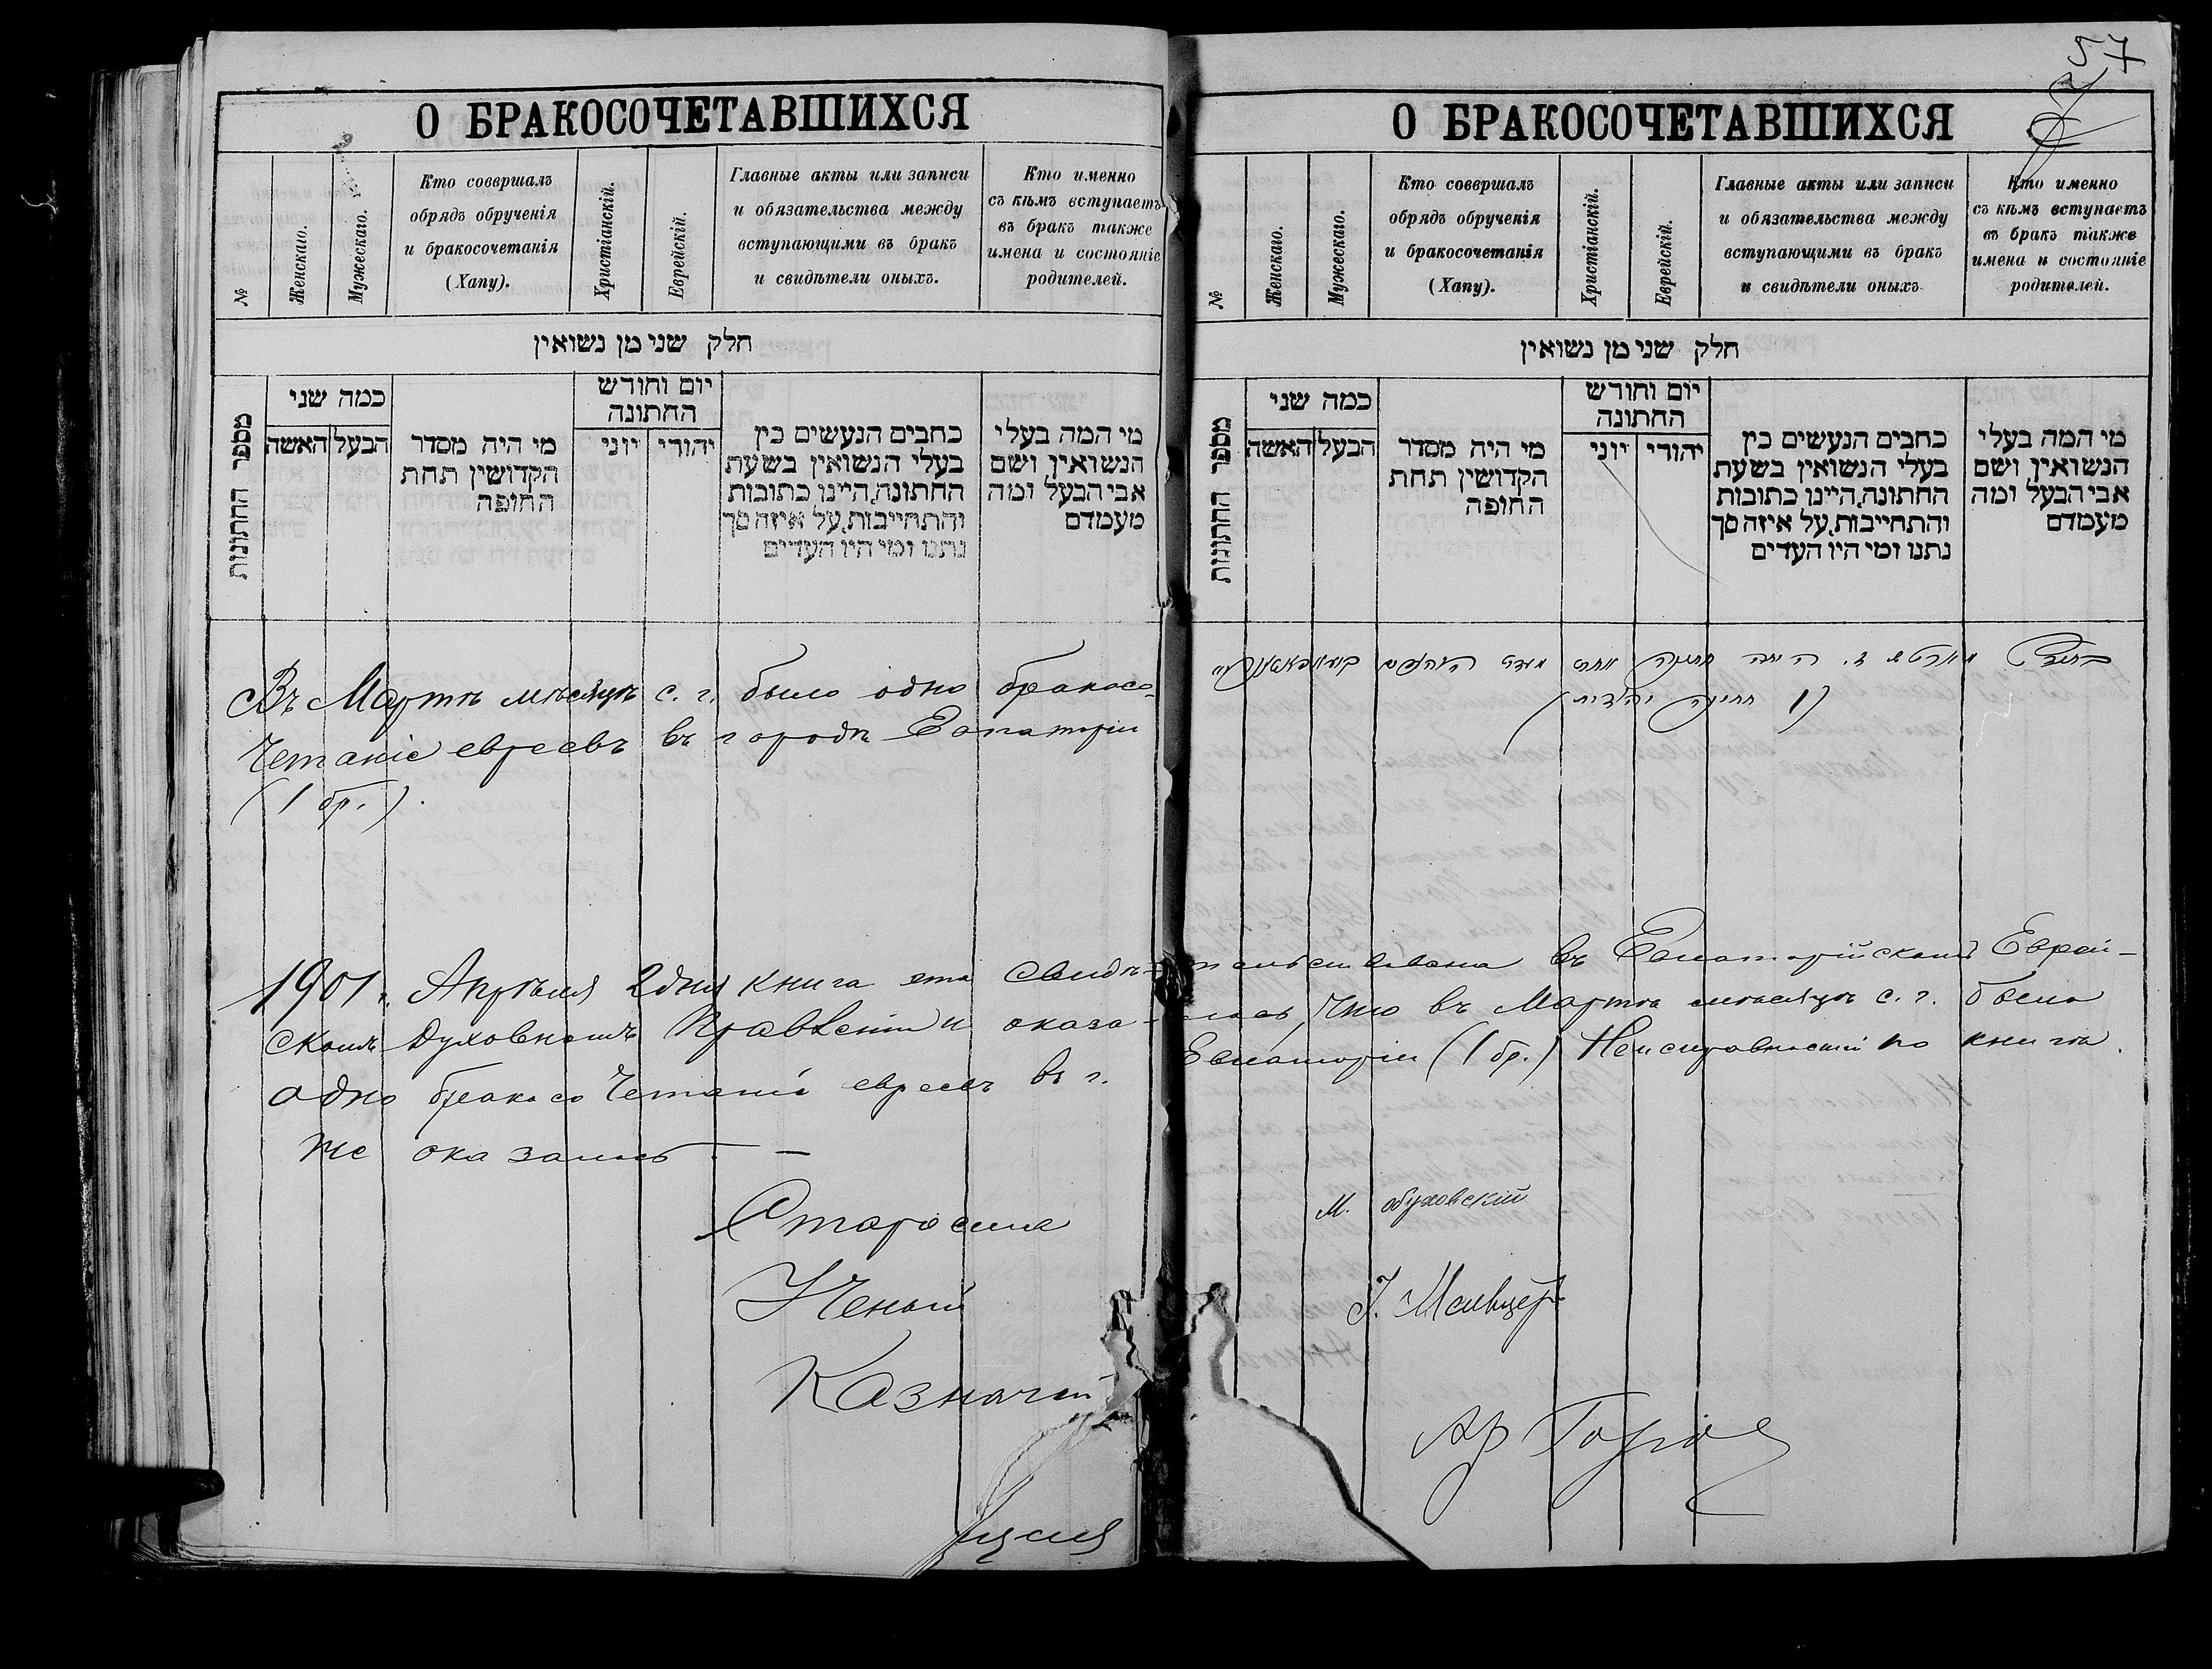 57
О БРАКОСОЧЕТАВШИХСЯ
№
Женскаго.
Мужескаго.
Кто совершалъ
обрядъ обрученія
и бракосочетанія
(Хапу).
Христіанскій.
Еврейскій.
Главные акты или записи
и обязательства между
вступающими въ бракъ
и свидѣтели оныхъ.
Кто именно
съ кѣмъ вступаетъ
въ бракъ также
имена и состояніе
родителей.
חלק שני מן נשואין
מספר החתונות
כמה שני
הבעל
האשה
מי היה מסדר
הקדושין תחת
החופה
יום וחודש
החתונה
יוני
יהודי
כתבים הנעשים בין
בעלי הנשואין בשעת
החתונה, היינו כתובות
והתחייבות, על איזה סך
נתנו ומי היו העדים
מי המה בעלי
הנשואין ושם
אבי הבעל ומה
מעמדם
Въ Мартѣ мѣсяцѣ с. г. было одно бракосо-
четаніе евреевъ въ городѣ Евпаторіи
(1 бр.).
О БРАКОСОЧЕТАВШИХСЯ
№
Женскаго.
Мужескаго.
Кто совершалъ
обрядъ обрученія
и бракосочетанія
(Хапу).
Христіанскій.
Еврейскій.
Главные акты или записи
и обязательства между
вступающими въ бракъ
и свидѣтели оныхъ
Кто именно
съ кѣмъ вступаетъ
въ бракъ также
имена и состояніе
родителей.
חלק שני מן נשואין
מספר החתונות
כמה שני
הבעל
האשה
מי היה מסדר
הקדושין תחת
החופה
יום וחודש
החתונה
יוני
יהודי
כתבים הנעשים בין
בעלי הנשואין בשעת
החתונה, היינו כתובות
והתחייבות, על איזה סך
נתנו ומי היו העדים
מי המה בעלי
הנשואין ושם
אבי הבעל ומה
מעמדם
בחדש היתה חתונה
(1 חתונה
1901 г. Апрѣля 2 дня книга эта свидѣтельствована въ Евпаторійскомъ Еврей-
скомъ Духовномъ Правленіи и оказалось, что въ Мартѣ мѣсяцѣ с. г. было
одно бракосочетаніе евреевъ въ г. Евпаторіи (1 бр.) Неисправностей по книгѣ
не оказалось. —
Староста М. Обуховскій
Ученый
Казначей